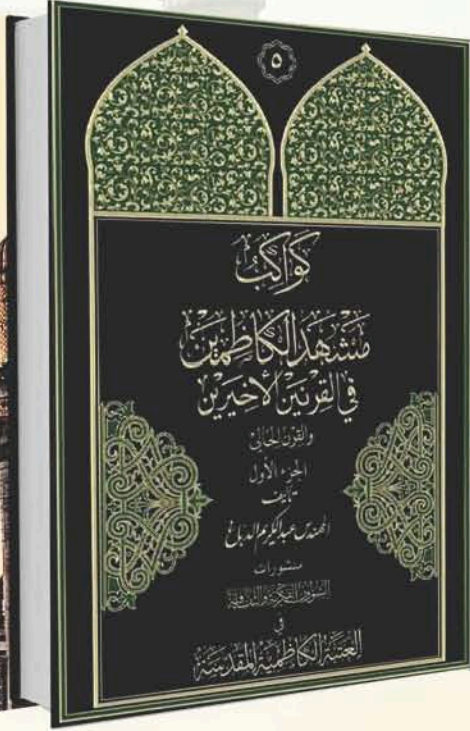 ٥
كواكب
مشهد الكاظمين
في القرنين الأخيرين
والقرن الحالي
الجزء الأول
تأليف
المهندس عبد الكريم الدباغ
منشورات
الشؤون الفكرية والثقافية
في
العتبة الكاظمية المقدسة